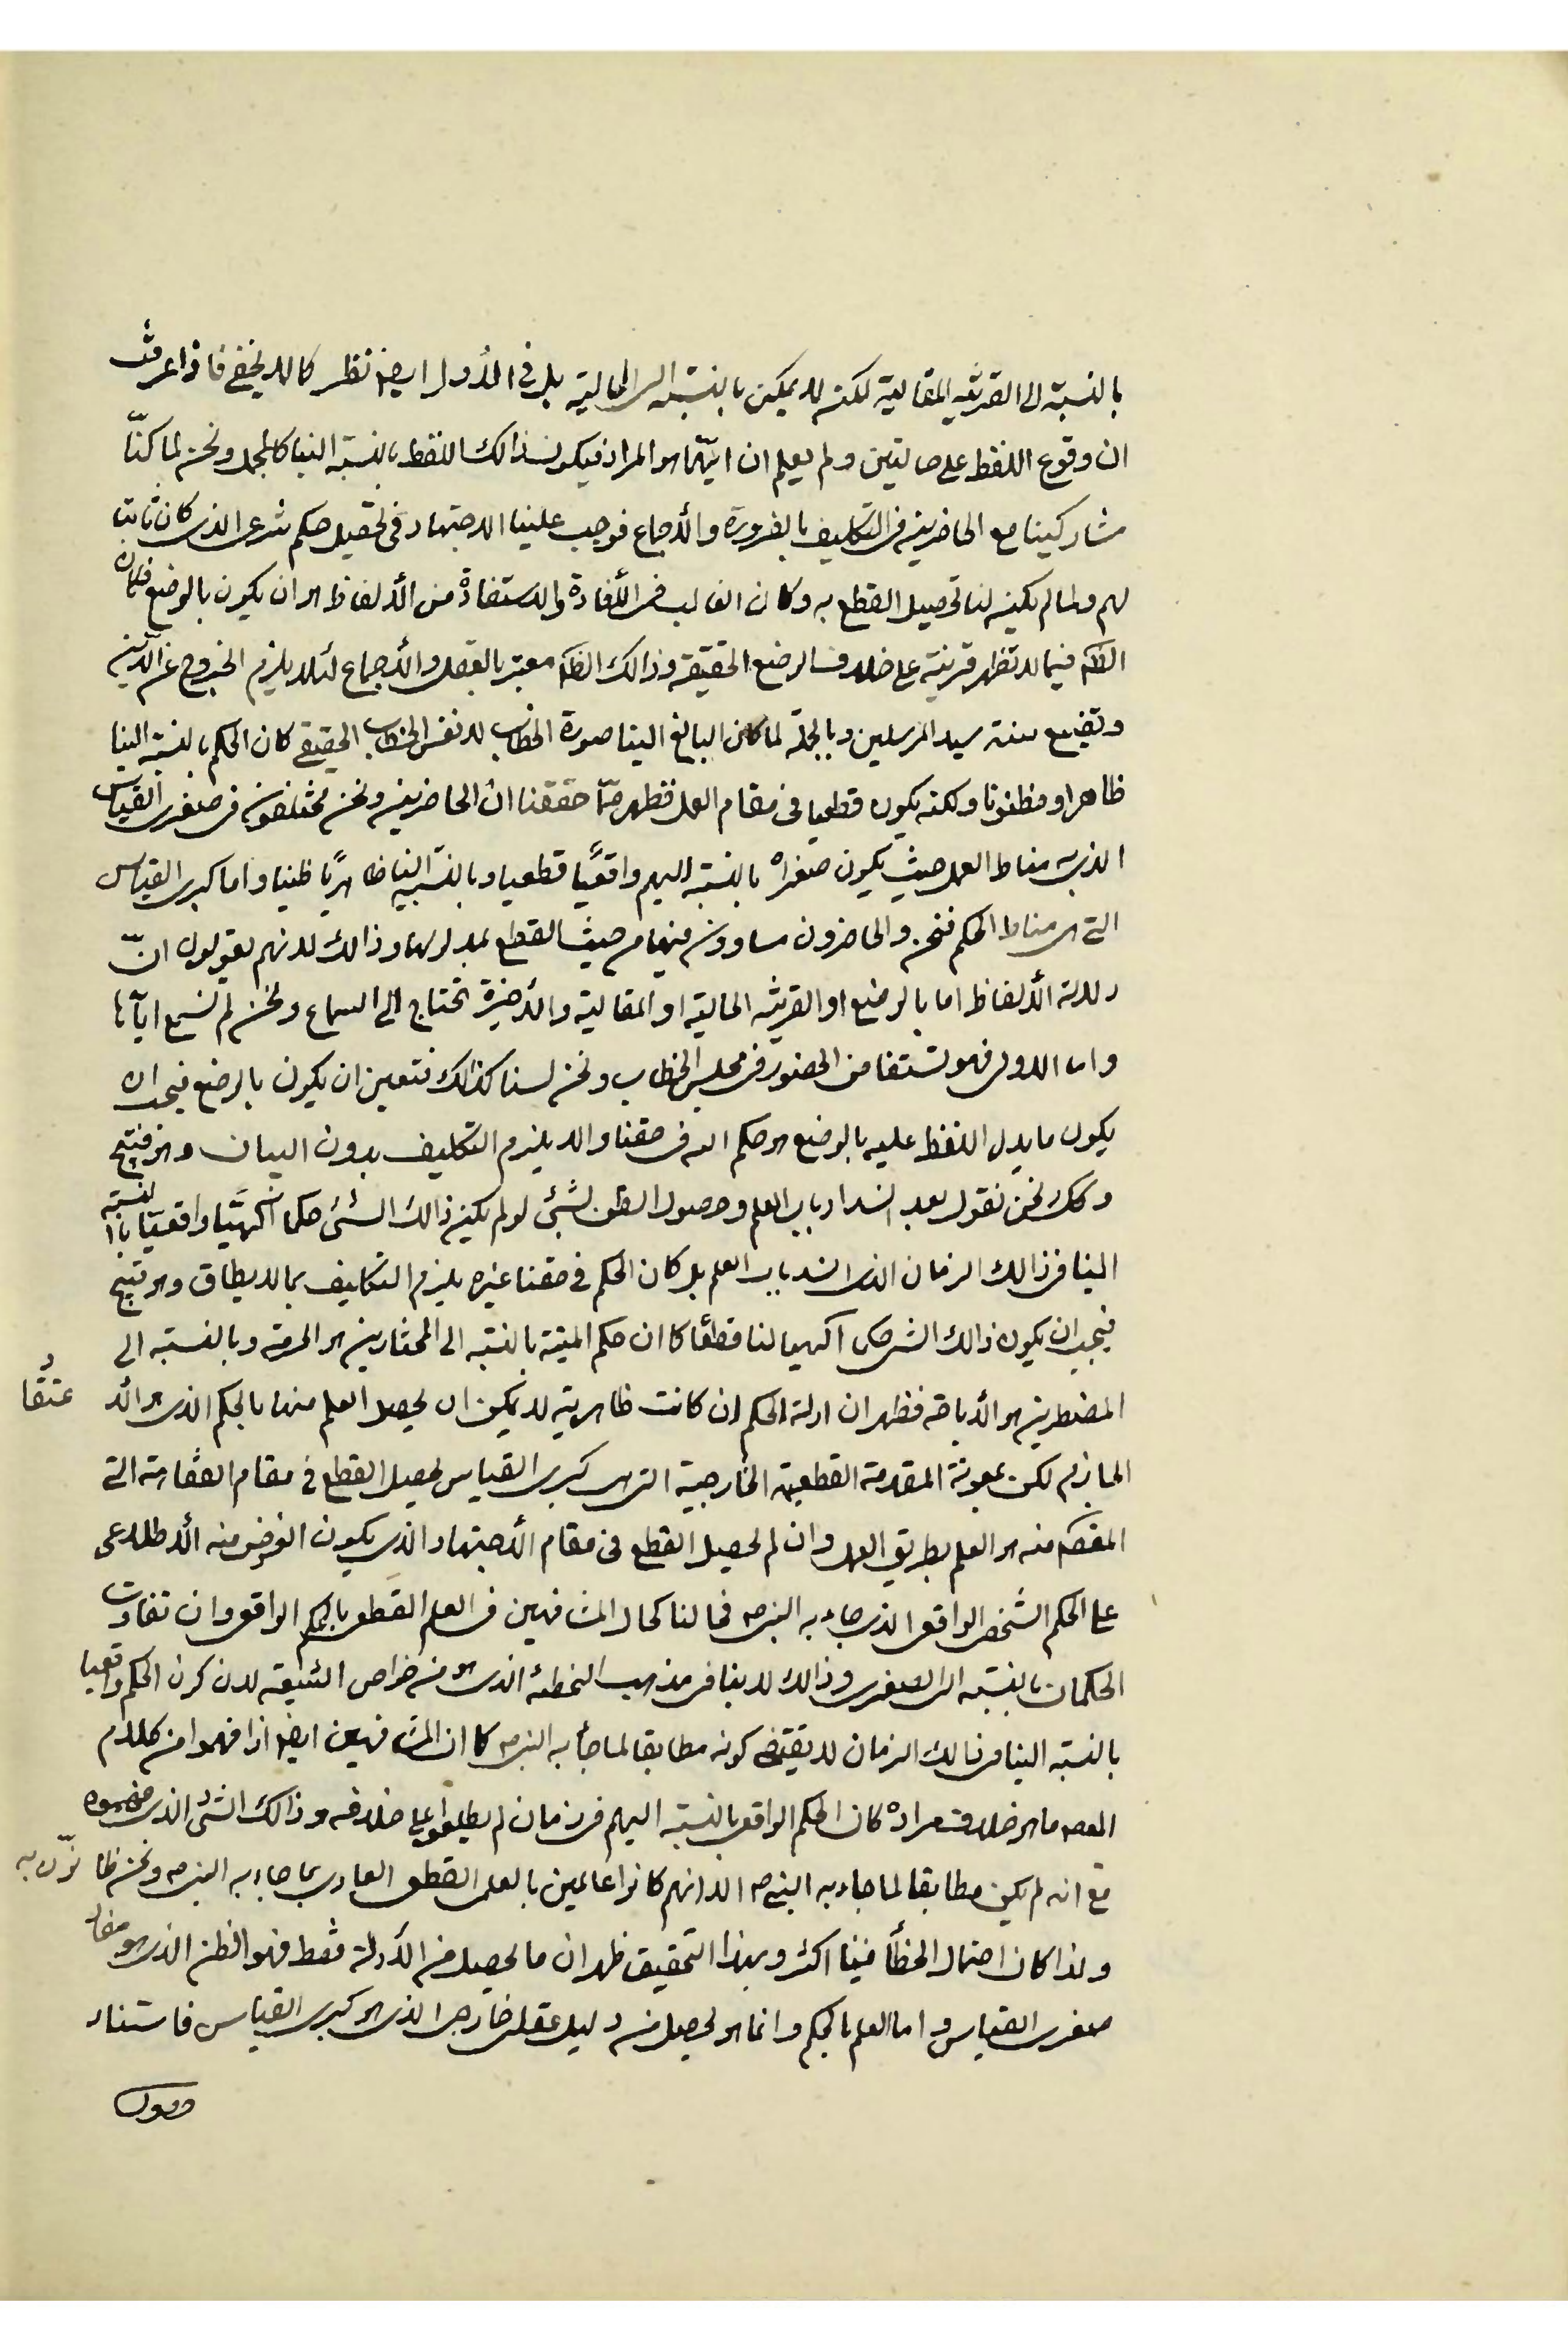 بالنسبة الى القرينة المقالية لكنه لا يمكن بالنسبة الى الحالية بل في الأول ايضا نظر كما لا يخفى فاذا عرفت
ان وقوع اللفظ على حالتين ولم يعلم ان ايّهما هو المراد فيكون ذالك اللفظ بالنسبة الينا كالمجمل ونحن لما كنّا
مشاركينا مع الحاضرين في التكليف بالضرورة والأجماع فوجب علينا الاجتهاد في تحصيل حكم شرعى الذى كان ثابتا
لهم ولما لم يكن لنا تحصيل القطع به وكان الغالب في الأفادة والاستفادة من الألفاظ هو ان يكون بالوضع فكان
الظاهر فيما لا تظهر قرينة على خلاف الوضع الحقيقة وذالك الظاهر معتبر بالعقل والأجماع لئلا يلزم الخروج عن الدين
وتضييع سنة سيد المرسلين وبالجملة لما كان البالغ الينا صورة الخطاب لا نفس الخطاب الحقيقي كان الحكم بالنسبة الينا
ظاهرا ومظنونا ولكنه يكون قطعيا في مقام العمل فظهر ممّا حققنا ان الحاضرين ونحن مختلفون في صغرى القياس
الذى به مناط العمل حيث يكون صغراه بالنسبة اليهم واقعيًا قطعيا وبالنسبة الينا ظاهريًا ظنيا واما كبرى القياس
التي هي مناط الحكم فنحن والحاضرون مساوون فيها من حيث القطع بمدلولها وذالك لانهم يقولون انّ
دلالة الألفاظ اما بالوضع او القرينة الحالية او المقالية والأخيرة تحتاج الى السماع ونحن لم نسمع ايّاها
واما الاولى فهو تستفا من الحضور في مجلس الخطاب ونحن لسنا كذالك فتعين ان يكون بالوضع فيجب ان
يكون ما يدل اللفظ عليه بالوضع هو حكم الله في حقنا والا يلزم التكليف بدون البيان وهو قبيح
وكك نحن نقول بعد انسداد باب العلم وحصول الظن لشئ لو لم يكن ذالك الشئ حكما آلهيًّا واقعيّا بالنسبة
الينا في ذالك الزمان الذى انسد باب العلم بل كان الحكم في حقنا غيره يلزم التكليف بما لا يطاق وهو قبيح
فيجب ان يكون ذالك الشئ حكما آلهيا لنا قطعًا كما ان حكم الميتة بالنسبة الى المختارين هو الحرمة وبالنسبة الى
المضطرين هو الأباحة فظهر ان ادلة الحكم ان كانت ظاهرية لا يمكن ان يحصل العلم منها بالحكم الذى هو الأ عتقاد
الجازم لكن بمعونة المقدمة القطعية الخارجية التى هي كبرى القياس يحصل القطع في مقام الفقاهة التي
المقصود منه هو العلم بطريق العمل وان لم يحصل القطع في مقام الأجتهاد الذى يكون الغرض منه الأطلاع
على الحكم الشخصى الواقعى الذى جاء به النبى ص فحالنا كحال المشافهين في العلم القطعى بالحكم الواقعى وان تفاوت
الحكمان بالنسبة الى الصغرى وذالك لا ينافى مذهب التخطئة الذى هو من خواص الشيعة لان كون الحكم واقعيا
بالنسبة الينا في ذالك الزمان لا يقتضى كونه مطابقا لما جاء به النبى ص كما ان المشافهين ايضا اذا فهموا من كلام
المعصوم ما هو خلاف مراده كان الحكم الواقعى بالنسبة اليهم في زمان لم يطلعوا على خلافه وذالك الشئ الذى فهموه
مع انه لم يكن مطابقا لما جاء به النبى ص الا انهم كانوا عالمين بالعلم القطعى العادى بما جاء به النبى ص ونحن ظانّون به
ولذا كان احتمال الخطأ فينا اكثر وبهذا التحقيق ظهر ان ما يحصل من الأدلة فقط فهو الظن الذى هو مفاد
صغرى القياس واما العلم بالحكم وانما هو يحصل من دليل عقلى خارجى الذى هو كبرى القياس فاستناد